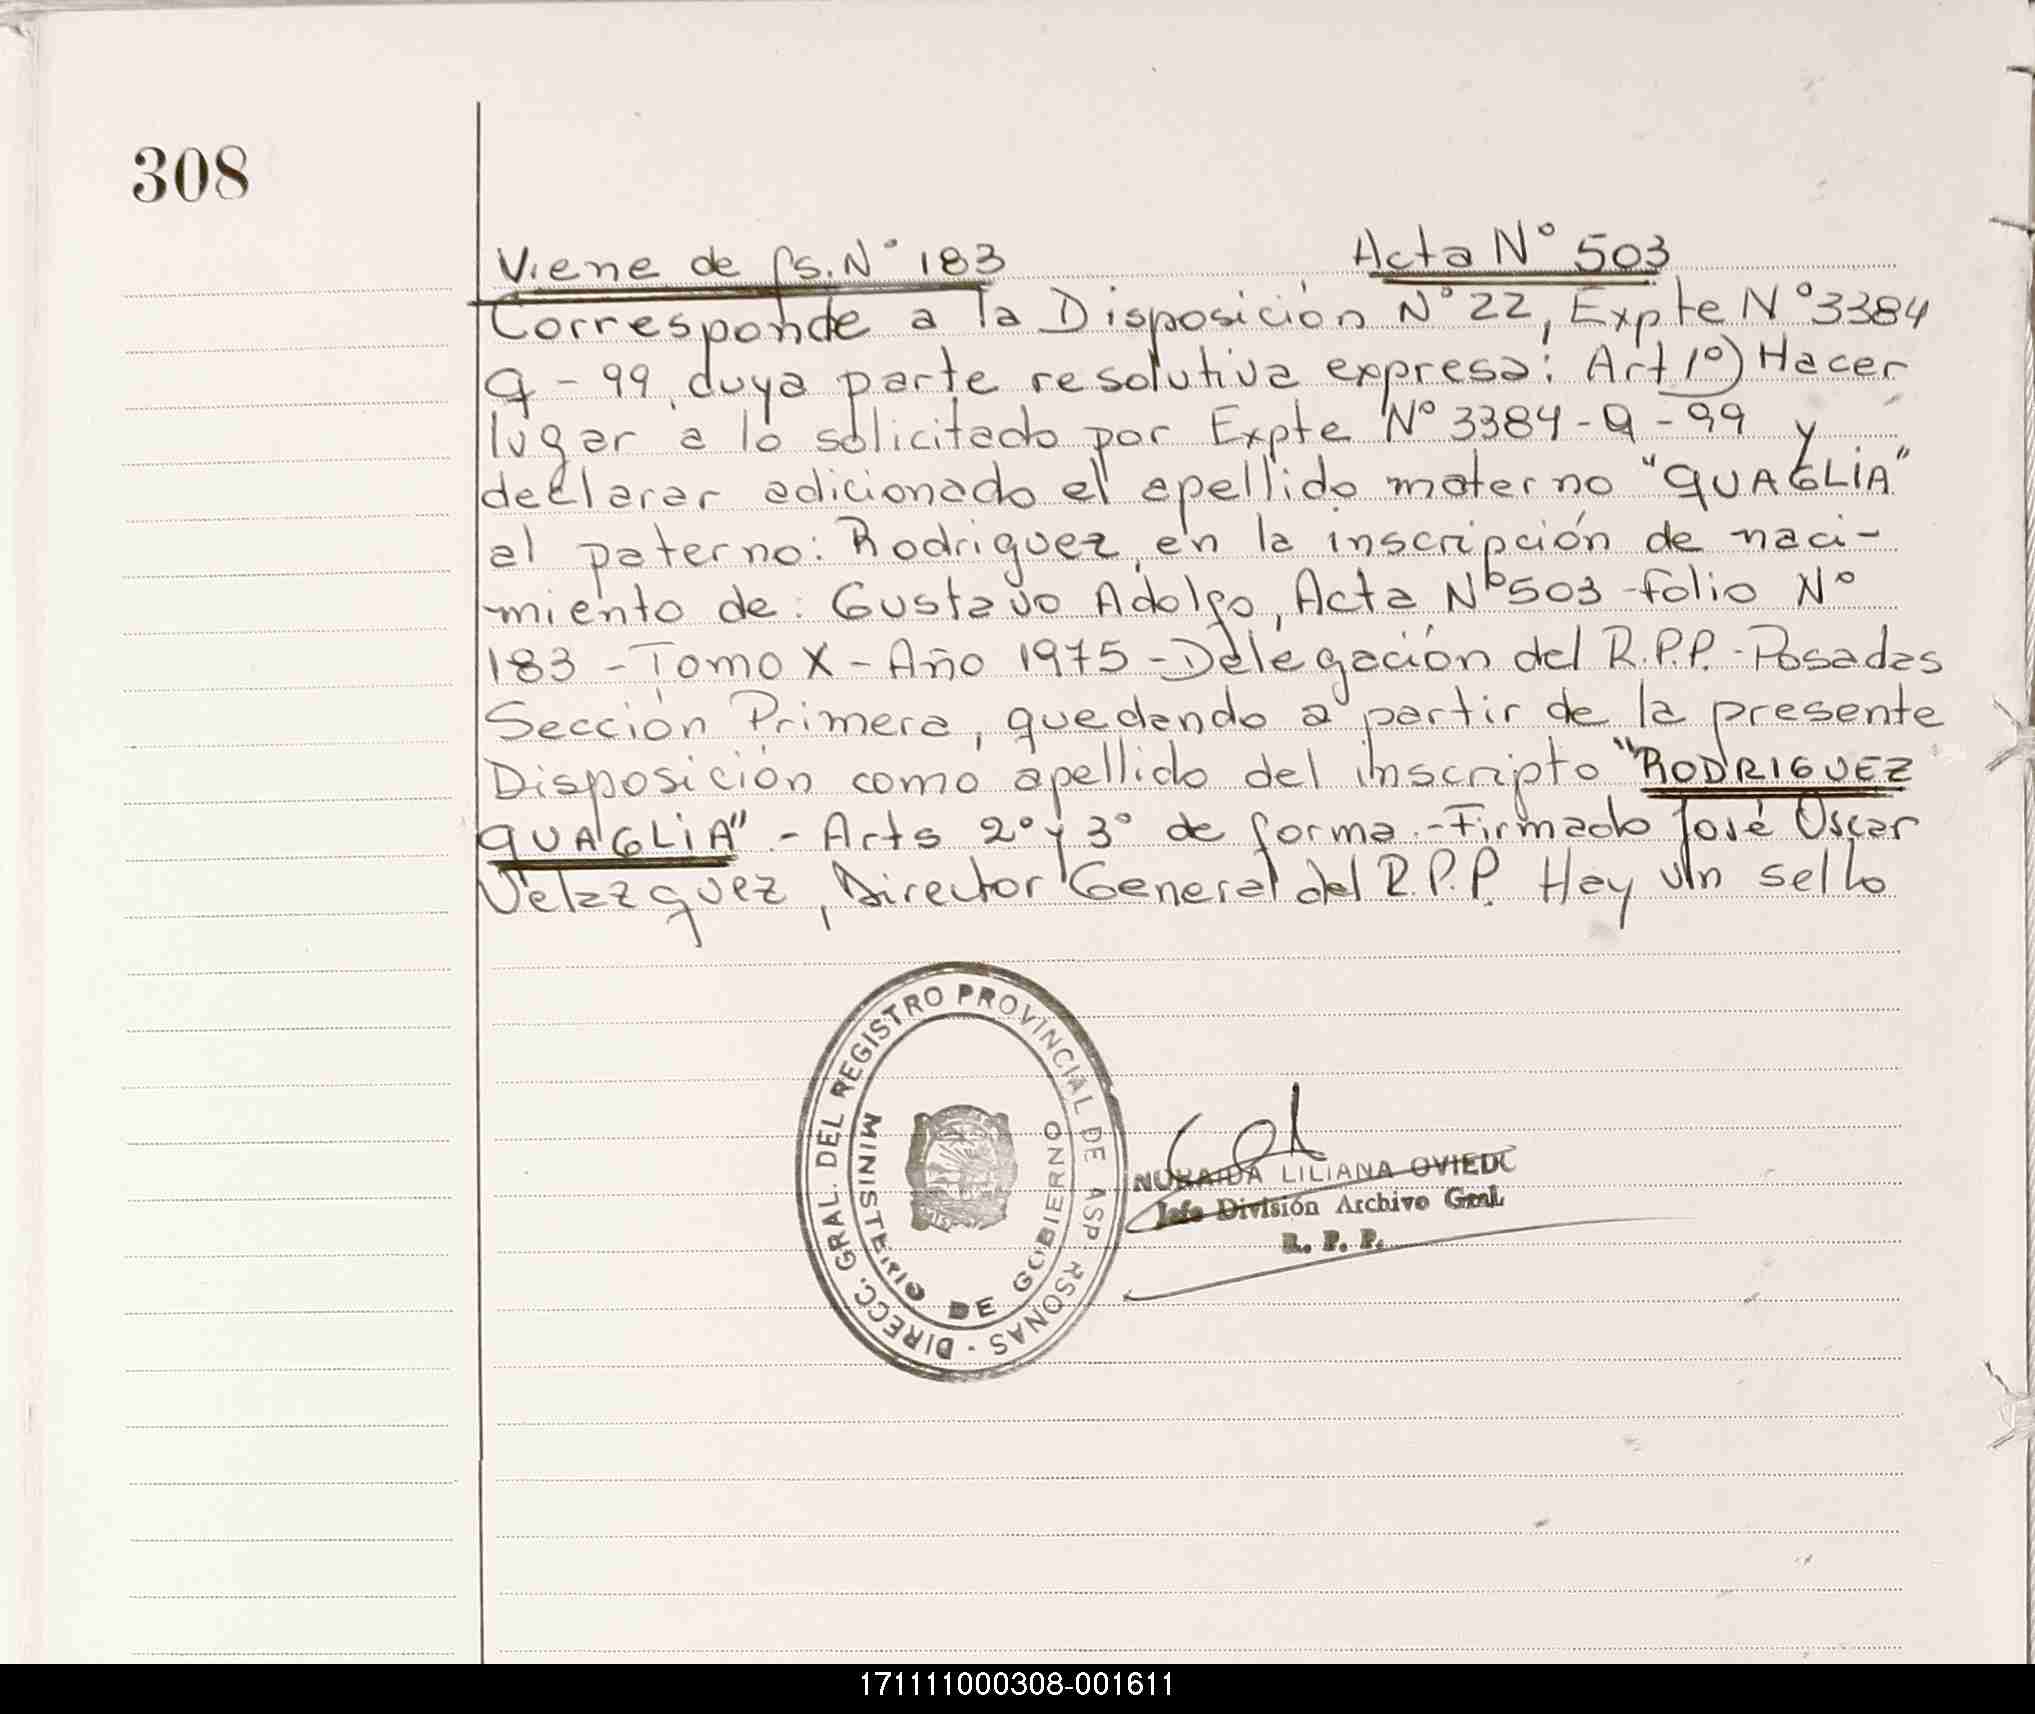 308
Viene de fs. N° 183 Acta N° 503
Corresponde a la Disposición N° 22, Expte N° 3384
Q - 99, cuya parte resolutiva expresa: Art 1°) Hacer
lugar a lo solicitado por Expte N° 3384 - Q - 99 y
declarar adicionado el apellido materno "QUAGLIA"
al paterno: Rodriguez, en la inscripción de naci-
miento de: Gustavo Adolfo, Acta N° 503 - folio N°
183 - Tomo X - Año 1975 - Delegación del R.P.P. - Posadas
Sección Primera, quedando a partir de la presente
Disposición como apellido del inscripto "RODRIGUEZ
QUAGLIA" - Arts 2° y 3° de forma. - Firmado José Oscar
Velazquez, Director General del R.P.P. Hay un sello
DIRECC. GRAL. DEL REGISTRO PROVINCIAL DE ASP RSONAS
MINISTERIO DE GOBIERNO
LILIANA OVIEDO
Jefe División Archivo Gral.
R. P. P.
171111000308-001611